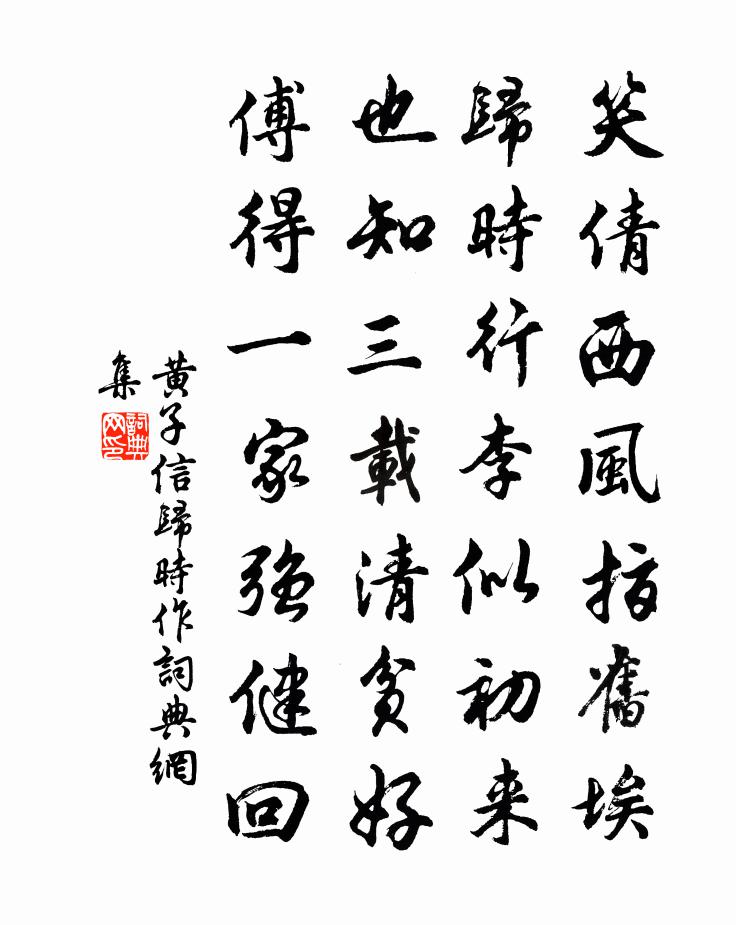 笑倩西風指舊埃
歸時行李似初来
也知三載清貧好
傅得一家強健回
黄子信歸時作詞典網
集
詞典
网印